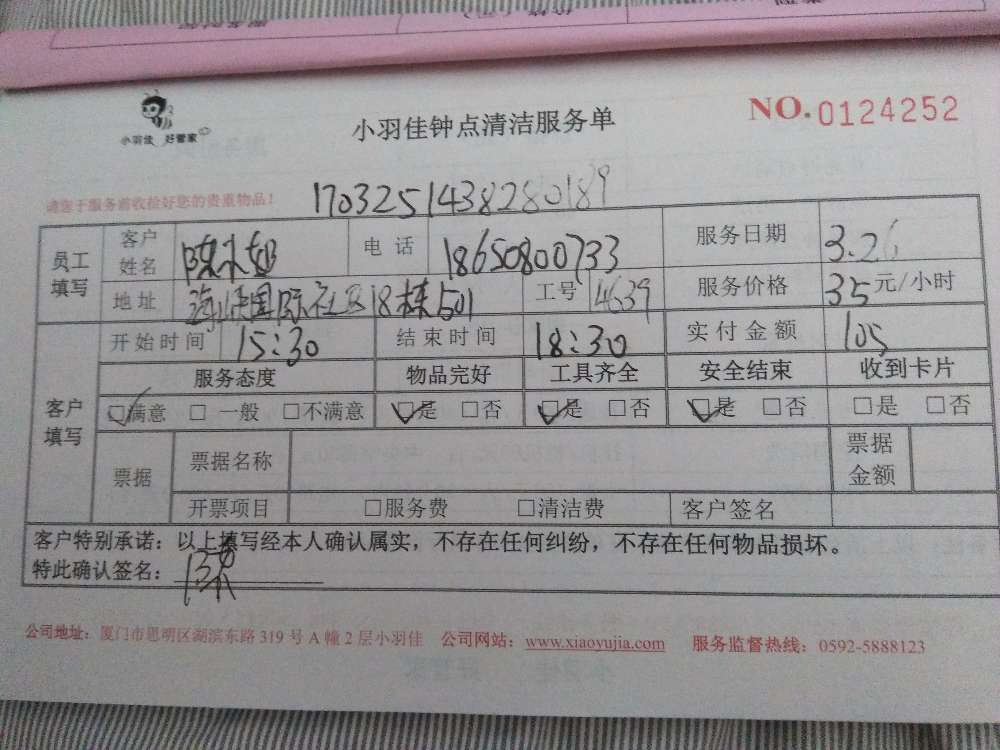 小羽佳 好管家
小羽佳钟点清洁服务单
NO.0124252
请您于服务前收捡好您的贵重物品!
1703251438280189
员工填写 客户姓名 陈小姐 电话 18650800733 服务日期 3.26
地址 国际社区18栋501 工号 4639 服务价格 35元/小时
客户填写 开始时间 15:30 结束时间 18:30 实付金额 105
服务态度 物品完好 工具齐全 安全结束 收到卡片
☑满意 □一般 □不满意 ☑是 □否 ☑是 □否 ☑是 □否 □是 □否
票据 票据名称 票据金额
开票项目 □服务费 □清洁费 客户签名
客户特别承诺:以上填写经本人确认属实,不存在任何纠纷,不存在任何物品损坏。
特此确认签名:
公司地址:厦门市思明区湖滨东路319号A幢2层小羽佳 公司网站:www.xiaoyujia.com 服务监督热线:0592-5888123